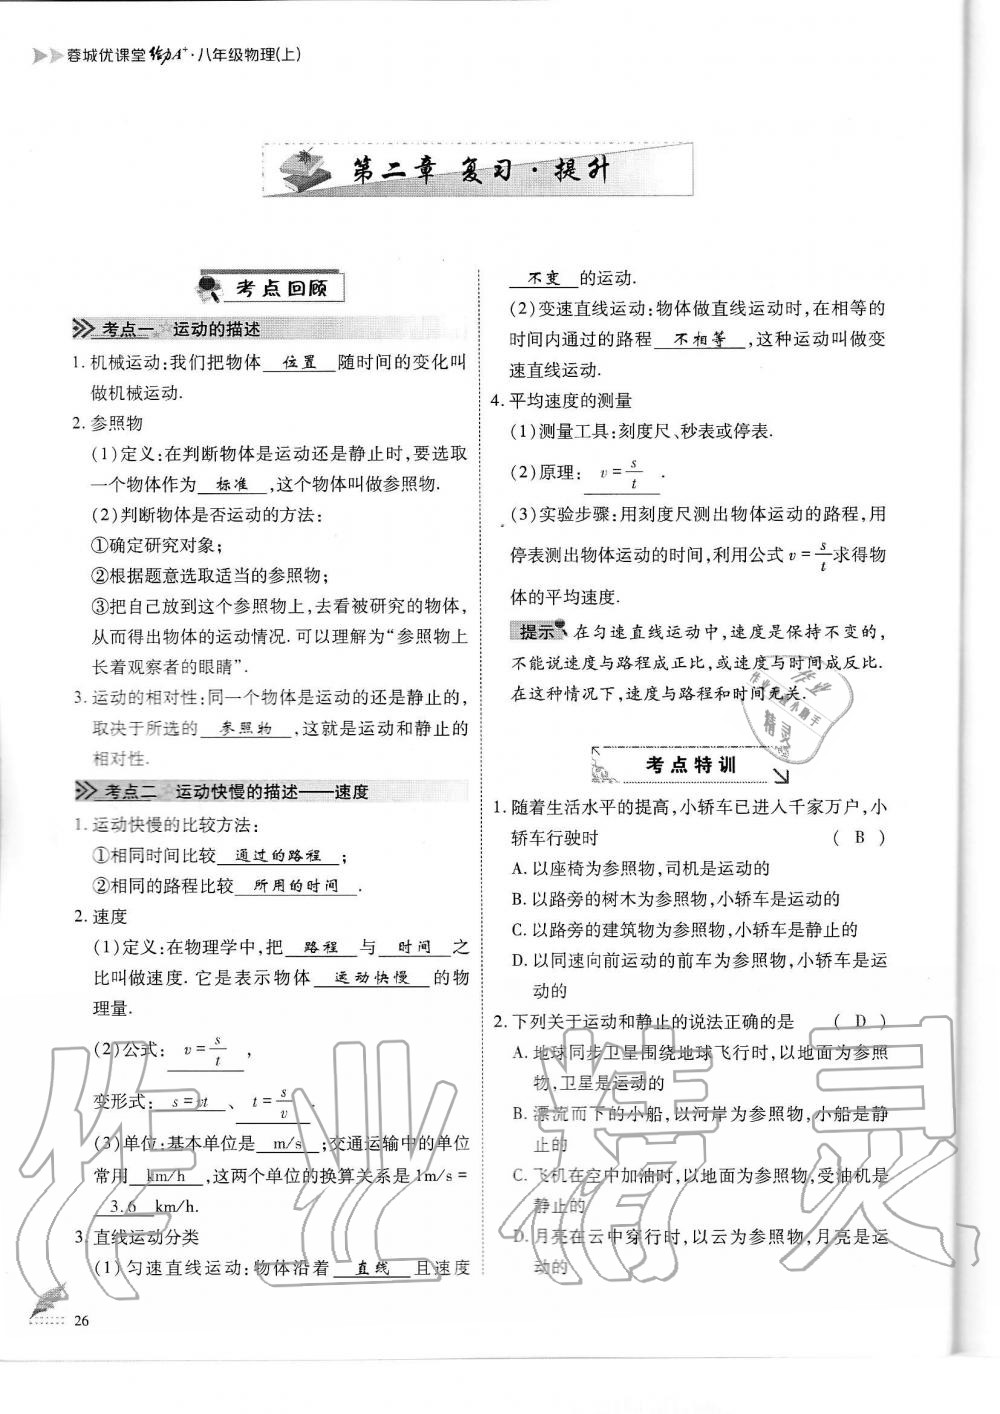 蓉城优课堂 给力A⁺·八年级物理(上)
第二章 复习·提升
考点回顾
考点一 运动的描述
1. 机械运动:我们把物体 位置 随时间的变化叫
做机械运动.
2. 参照物
(1)定义:在判断物体是运动还是静止时,要选取
一个物体作为 标准 ,这个物体叫做参照物.
(2)判断物体是否运动的方法:
①确定研究对象;
②根据题意选取适当的参照物;
③把自己放到这个参照物上,去看被研究的物体,
从而得出物体的运动情况. 可以理解为“参照物上
长着观察者的眼睛”.
3. 运动的相对性:同一个物体是运动的还是静止的,
取决于所选的 参照物 ,这就是运动和静止的
相对性.
考点二 运动快慢的描述——速度
1. 运动快慢的比较方法:
①相同时间比较 通过的路程 ;
②相同的路程比较 所用的时间 .
2. 速度
(1)定义:在物理学中,把 路程 与 时间 之
比叫做速度. 它是表示物体 运动快慢 的物
理量.
(2)公式: v=s/t ,
变形式: s=vt 、 t=s/v .
(3)单位:基本单位是 m/s ;交通运输中的单位
常用 km/h ,这两个单位的换算关系是 1m/s=
3.6 km/h.
3. 直线运动分类
(1)匀速直线运动:物体沿着 直线 且速度
不变 的运动.
(2)变速直线运动:物体做直线运动时,在相等的
时间内通过的路程 不相等 ,这种运动叫做变
速直线运动.
4. 平均速度的测量
(1)测量工具:刻度尺、秒表或停表.
(2)原理: v=s/t .
(3)实验步骤:用刻度尺测出物体运动的路程,用
停表测出物体运动的时间,利用公式 v=s/t 求得物
体的平均速度.
提示 在匀速直线运动中,速度是保持不变的,
不能说速度与路程成正比,或速度与时间成反比.
在这种情况下,速度与路程和时间无关.
考点特训
1. 随着生活水平的提高,小轿车已进人千家万户,小
轿车行驶时 ( B )
A. 以座椅为参照物,司机是运动的
B. 以路旁的树木为参照物,小轿车是运动的
C. 以路旁的建筑物为参照物,小轿车是静止的
D. 以同速向前运动的前车为参照物,小轿车是运
动的
2. 下列关于运动和静止的说法正确的是 ( D )
A. 地球同步卫星围绕地球飞行时,以地面为参照
物,卫星是运动的
B. 漂流而下的小船,以河岸为参照物,小船是静
止的
C. 飞机在空中加油时,以地面为参照物,受油机是
静止的
D. 月亮在云中穿行时,以云为参照物,月亮是运
动的
26
作业精灵